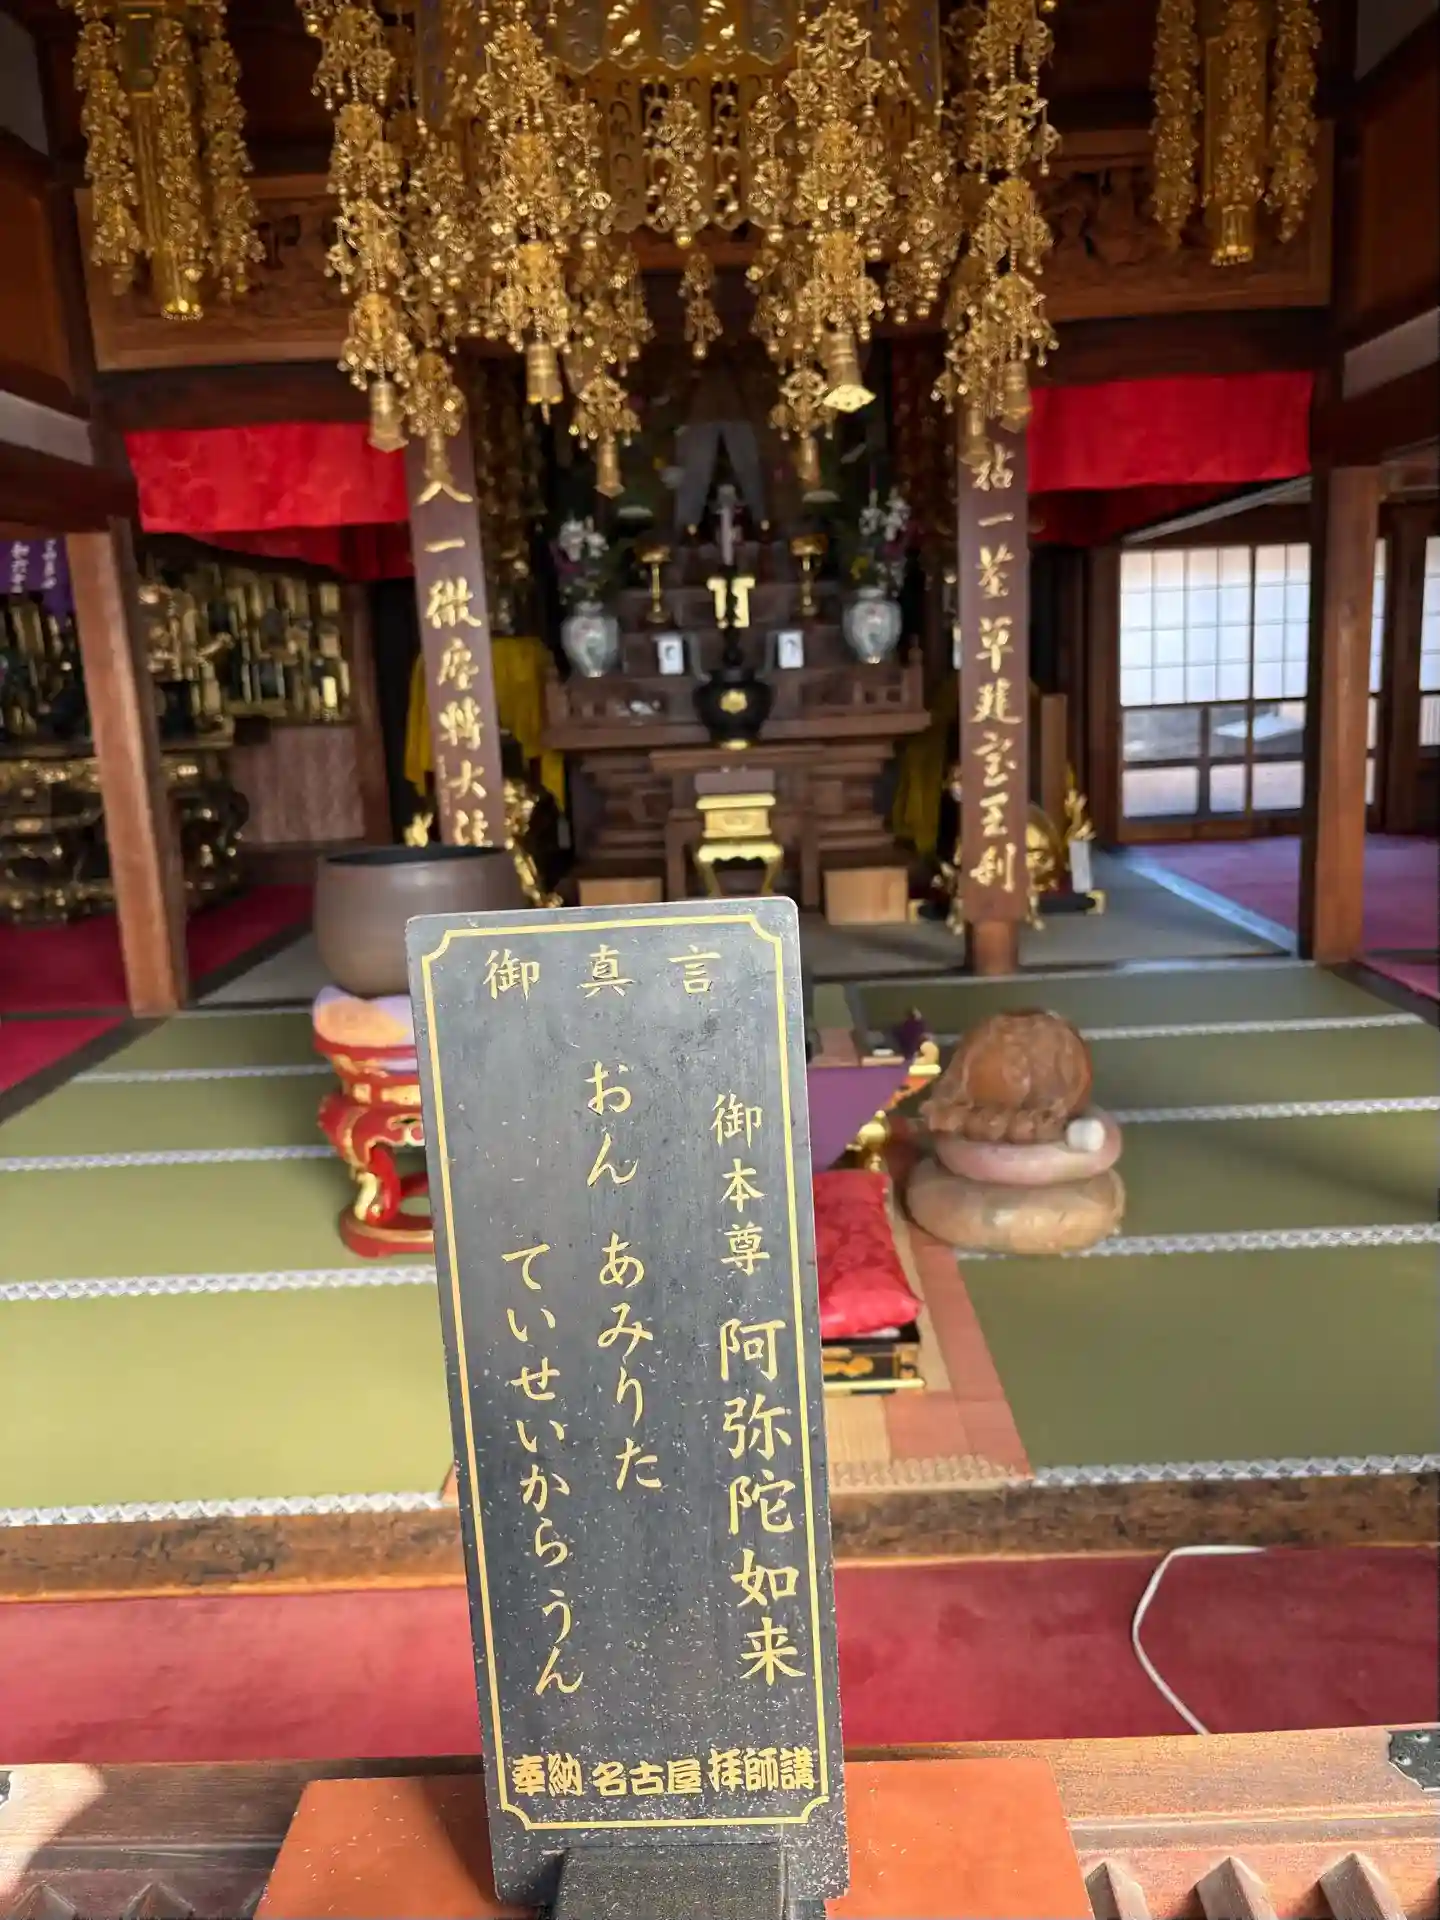 御真言
御本尊 阿弥陀如来
おん あみりた
ていせいからうん
奉納 名古屋 拝師講
拈一莖草建宝王刹
入一微塵轉大法